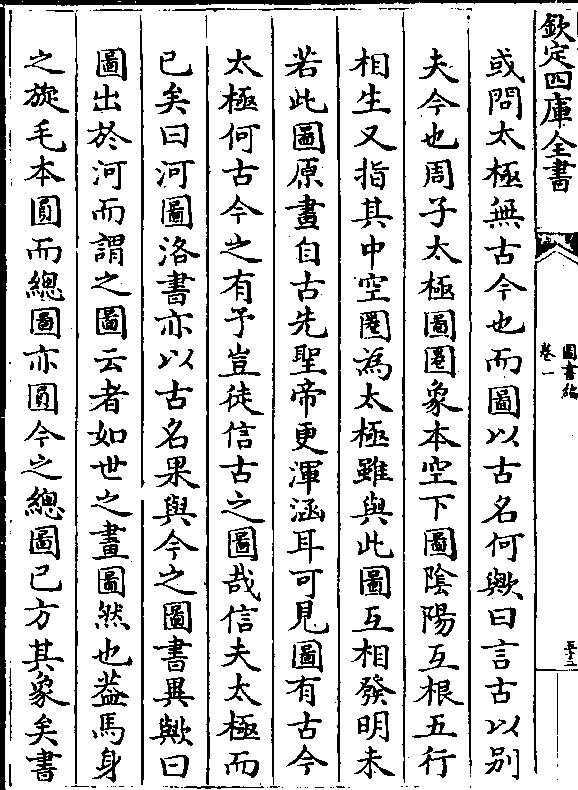 欽定四庫全書
圖書編
卷一
或問太極無古今也而圖以古名何歟曰言古以別
夫今也周子太極圖圈象本空下圖陰陽互根五行
相生又指其中空圈為太極雖與此圖互相發明未
若此圖原畫自古先聖帝更渾涵耳可見圖有古今
太極何古今之有予豈徒信古之圖哉信夫太極而
已矣曰河圖洛書亦以古名果與今之圖書異歟曰
圖出於河而謂之圖云者如世之畫圖然也葢馬身
之旋毛本圓而總圖亦圓今之總圖已方其象矣書